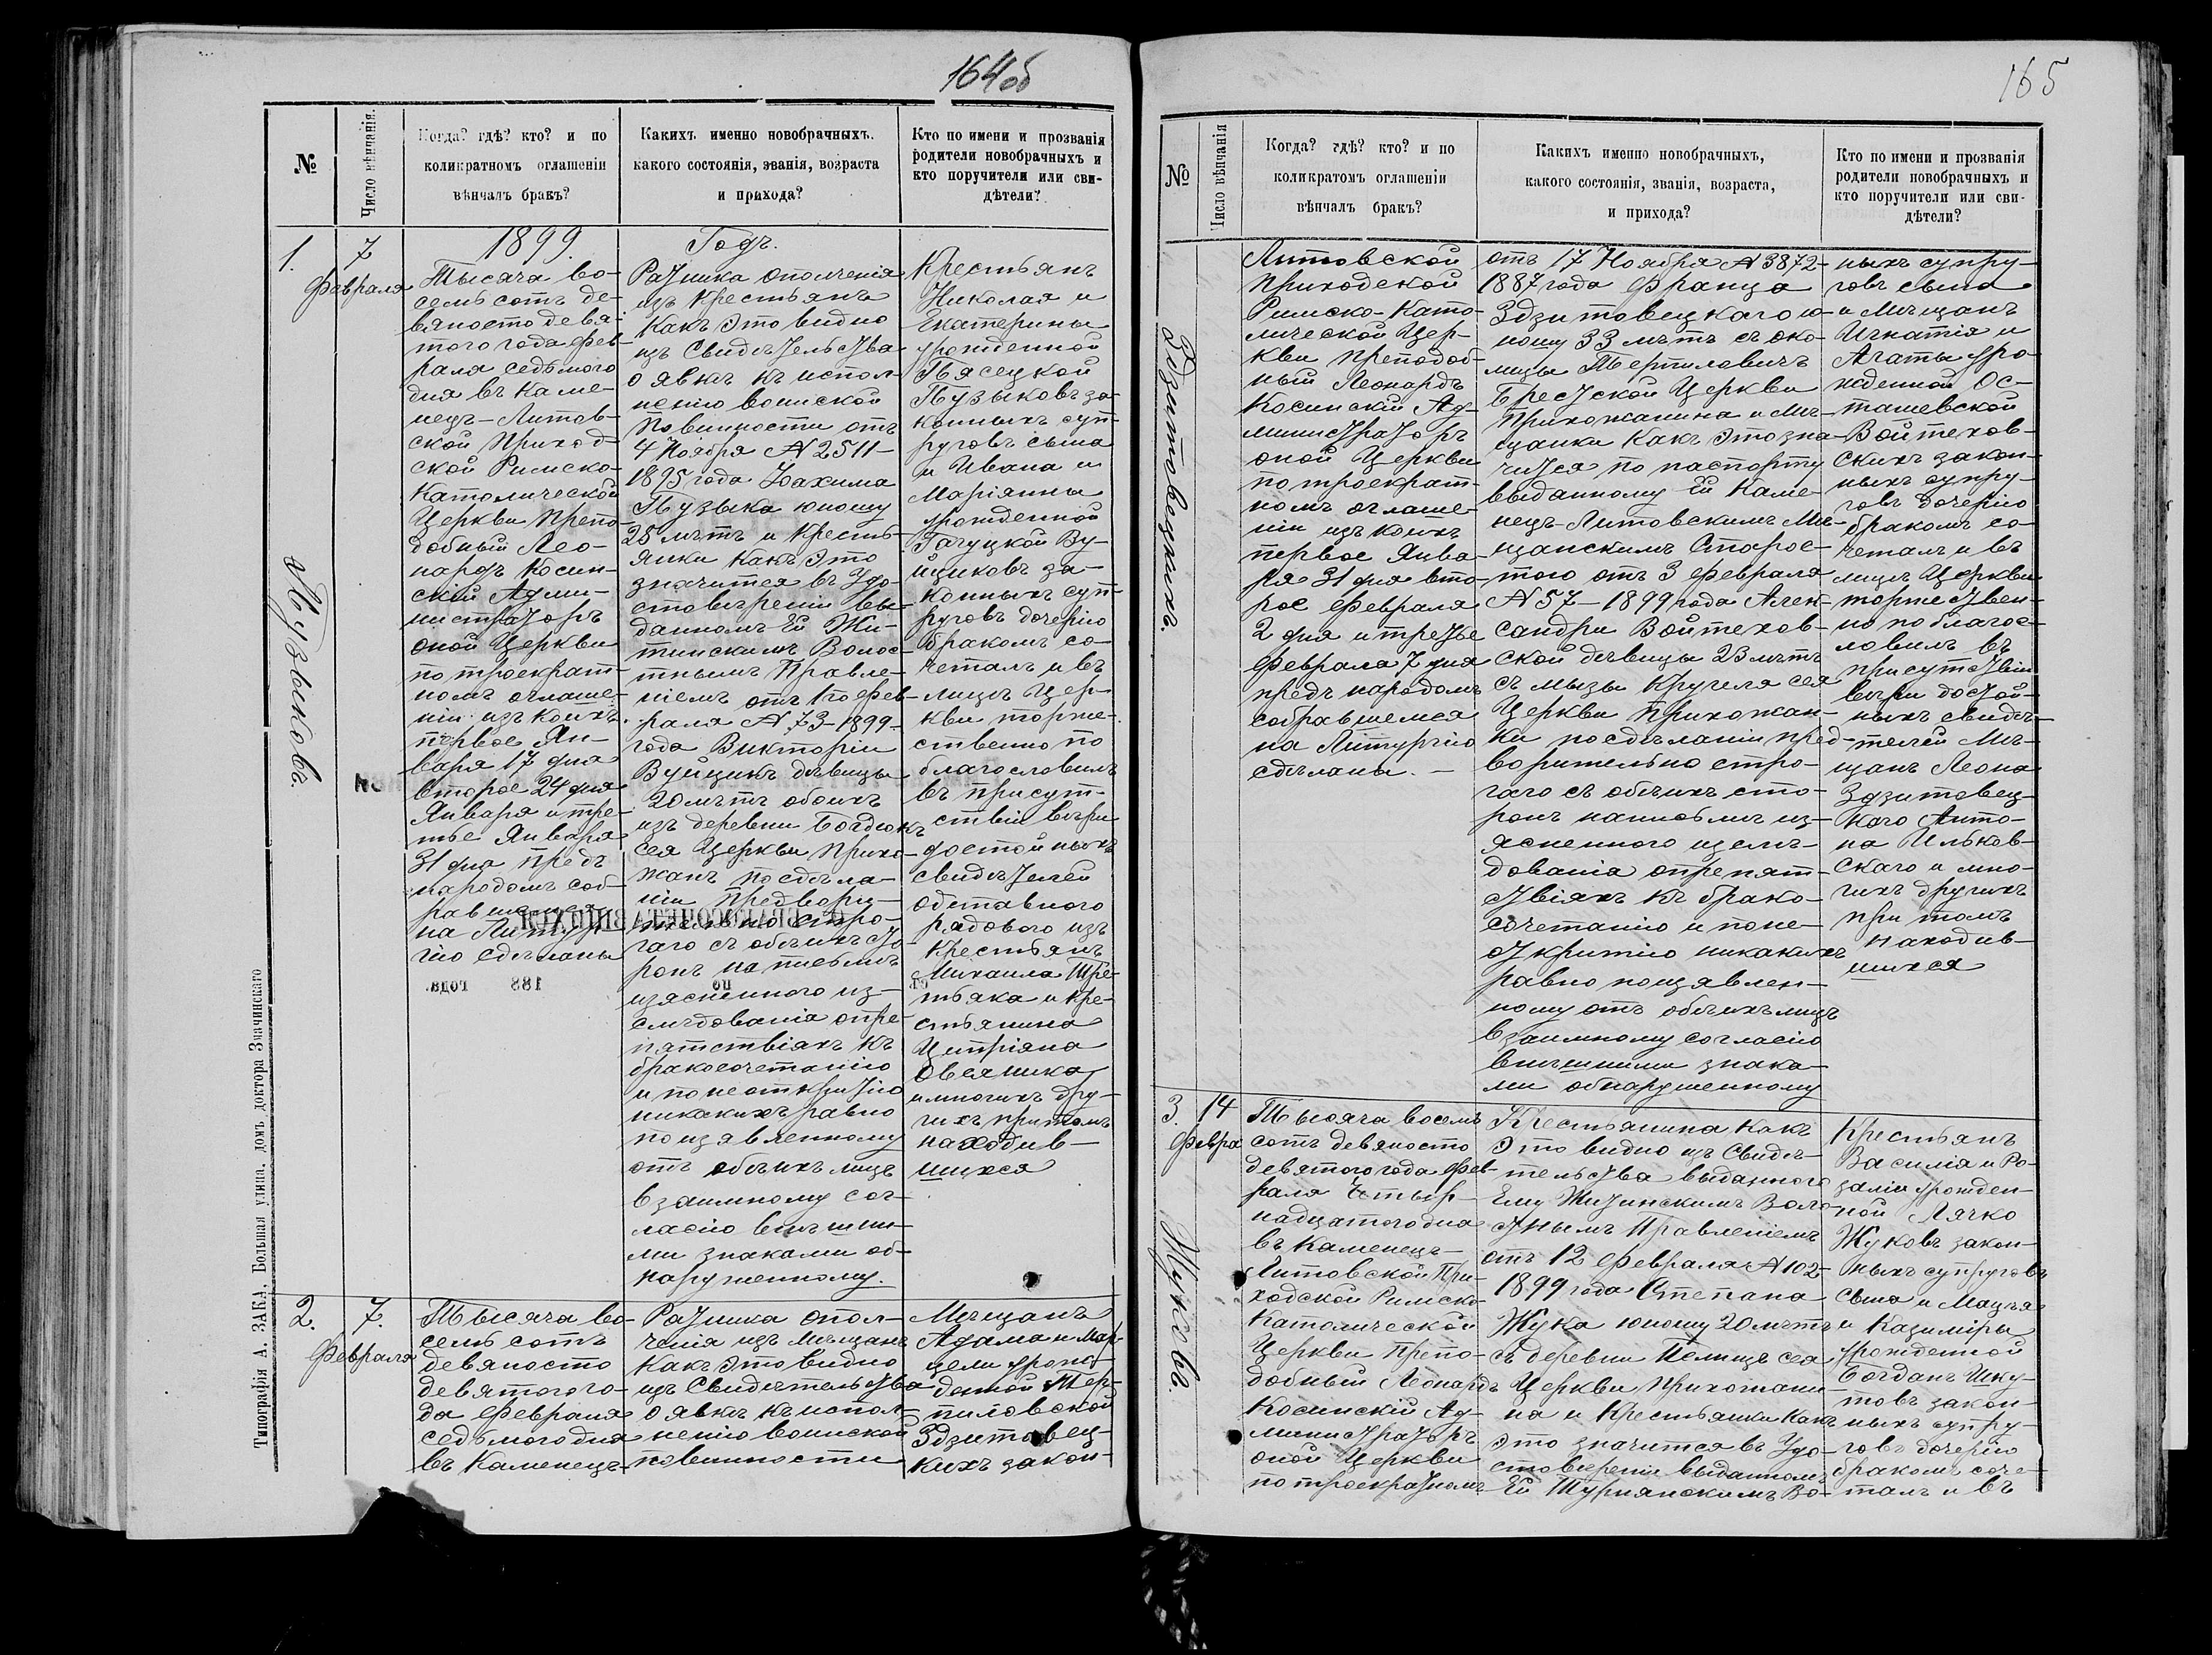 164об
№
Число вѣнчанія.
Когда? гдѣ? кто? и по
коликратномъ оглашеніи
вѣнчалъ бракъ?
Какихъ именно новобрачныхъ.
какого состоянія, званія, возраста
и прихода?
Кто по имени и прозванія
родители новобрачныхъ и
кто поручители или сви-
дѣтели?
1.
7
Февраля
Музыковъ.
1899.
Тысяча во-
семь сотъ де-
вяносто девя-
того года фев-
раля седьмого
дня въ Каме-
нецъ-Литов-
ской приход-
ской Римско-
Католической
Церкви Препо-
добный Лео-
нардъ Косин-
скій Адми-
нистраторъ
оной Церкви
по троекрат-
номъ оглаше-
ніи изъ коихъ
первое Ян-
варя 17 дня
второе 24 дня
Января и тре-
тье Января
31 дня предъ
народомъ соб-
равшемся
на Литур-
гію сдѣланы
Годъ.
Ратника ополченія
изъ крестьянъ
Какъ это видно
изъ Свидѣтельства
о явкѣ къ испол-
ненію воинской
повинности отъ
4 Ноября № 2511-
1895 года Іоахима
Пузыка юношу
25 лѣтъ и кресть-
янки какъ это
значится въ Удо-
стовѣреніи вы-
данномъ Ей Жи-
тинскимъ Волос-
тнымъ Правле-
ніемъ отъ 1го Фев-
раля № 73-1899-
года Викторіи
Вуйцикъ дѣвицы
20 лѣтъ обоихъ
изъ деревни Богдюкъ
сея Церкви прихо-
жанъ по сдѣла-
ніи предвори-
тельно стро-
гаго съ обѣихъ сто-
ронъ на письмѣ
изясненного из-
слѣдованія опре-
пятствіяхъ къ
бракосочетанію
и по неоткрытію
никакихъ равно
по изявленному
отъ обѣихъ лицъ
взаимному сог-
ласію внѣшни-
ми знаками об-
наруженному.
Крестьянъ
Николая и
Екатерины
урожденной
Пясецкой
Пузыковъ за-
конныхъ суп-
руговъ сына
и Ивана и
Маріанны
урожденной
Гагуцкой Ву-
йциковъ за-
конныхъ суп-
руговъ дочерію
бракомъ со-
четалъ и въ
лицѣ Цер-
кви торже-
ственно по
благословилъ
въ присут-
ствіи вѣры
достойныхъ
свидѣтелей
отставного
рядового изъ
крестьянъ
Михаила Тре-
тьяка и кре-
стьянина
Ципріяна
Овсяника
и многихъ дру-
гихъ притомъ
находив-
шихся
2.
7.
Февраля
Тысяча во-
семь сотъ
девяносто
девятого го-
да Февраля
седьмого дня
въ Каменецъ-
Ратника опол-
ченія изъ мѣщанъ
Какъ это видно
изъ Свидѣтельства
о явкѣ къ испол-
ненію воинской
повинности
Мѣщанъ
Адама и Мар-
цели урож-
денной Тер-
пиловской
Здзитовец-
кихъ закон-
Типографія А. ЗАКА, Большая улица, домъ доктора Значинскаго
165
№
Число вѣнчанія
Когда? гдѣ? кто? и по
коликратомъ оглашеніи
вѣнчалъ бракъ?
Какихъ именно новобрачныхъ,
какого состоянія, званія, возраста,
и прихода?
Кто по имени и прозванія
родители новобрачныхъ и
кто поручители или сви-
дѣтели?
Здзитовецкихъ.
Литовской
приходской
Римско-Като-
лической Цер-
кви преподоб-
ный Леонардъ
Косинскій Ад-
министраторъ
оной Церкви
по троекрат-
номъ оглаше-
ніи изъ коихъ
первое Янва-
ря 31 дня вто-
рое Февраля
2 дня и третье
Февраля 7 дня
предъ народомъ
собравшемся
на Литургію
сдѣланы. —
отъ 17 Ноября № 3872-
1887 года Франца
Здзитовецкаго ю-
ношу 33 лѣтъ съ око-
лицы Терпиловичъ
Брестской Церкви
Прихожанина и Мѣ-
щанки Какъ это зна-
чится по паспорту
выданному Ей Каме-
нецъ-Литовскимъ Мѣ-
щанскимъ Старос-
тою отъ 3 Февраля
№ 57-1899 года Алек-
сандры Войтехов-
ской дѣвицы 23 лѣтъ
съ мызы Кругеля сея
Церкви прихожан-
ки по сдѣланіи пред-
ворительно стро-
гаго съ обѣихъ сто-
ронъ написьмѣ из-
ясненного изслѣ-
дованія опрепят-
ствіяхъ къ брако-
сочетанію и поне-
откритію никакихъ
равно поизявлен-
ному отъ обѣихъ лицъ
взаимному согласію
внѣшними знака-
ми обнаруженному
ныхъ супру-
говъ сына
и Мѣщанъ
Игнатія и
Агаты уро-
жденной Ос-
ташевской
Войтехов-
скихъ закон-
ныхъ супру-
говъ дочерію
бракомъ со-
четалъ и въ
лицѣ Церкви
торжествен-
но поблагос-
ловилъ въ
присутствіи
вѣры достой-
ныхъ свидѣ-
телей Мѣ-
щанъ Леона
Здзитовец-
каго Анто-
на Ильков-
скаго и мно-
гихъ другихъ
при томъ
находив-
шихся
3.
14
Февра
Жуковъ.
Тысяча восемь
сотъ девяносто
девятого года Фев-
раля Четыр-
надцатого дня
въ Каменецъ-
Литовской При-
ходской Римско-
Католической
Церкви Препо-
добный Леонардъ
Косинскій Ад-
министраторъ
оной Церкви
по троекратномъ
Крестьянина какъ
это видно изъ Свидѣ-
тельства выданного
Ему Житинскимъ Воло-
стнымъ Правленіемъ
отъ 12 Февраля № 102-
1899 года Степана
Жука юношу 20 лѣтъ
съ деревни Пелищъ сея
Церкви прихожани-
на и Крестьянки Какъ
это значится въ Удо-
стовѣреніи выданномъ
Ей Турнянскимъ Во-
Крестьянъ
Василія и Ро-
заліи урожден-
ной Лячко
Жуковъ закон-
ныхъ супруговъ
сына и Мацѣя
и Казиміры
урожденной
Богданъ Шку-
товъ закон-
ныхъ супру-
говъ дочерію
бракомъ соче-
талъ и въ